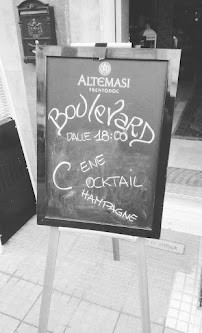 ALTEMASI
TRENTODOC
BOULEVARD
DALLE 18:00
CENE
COCKTAIL
CHAMPAGNE